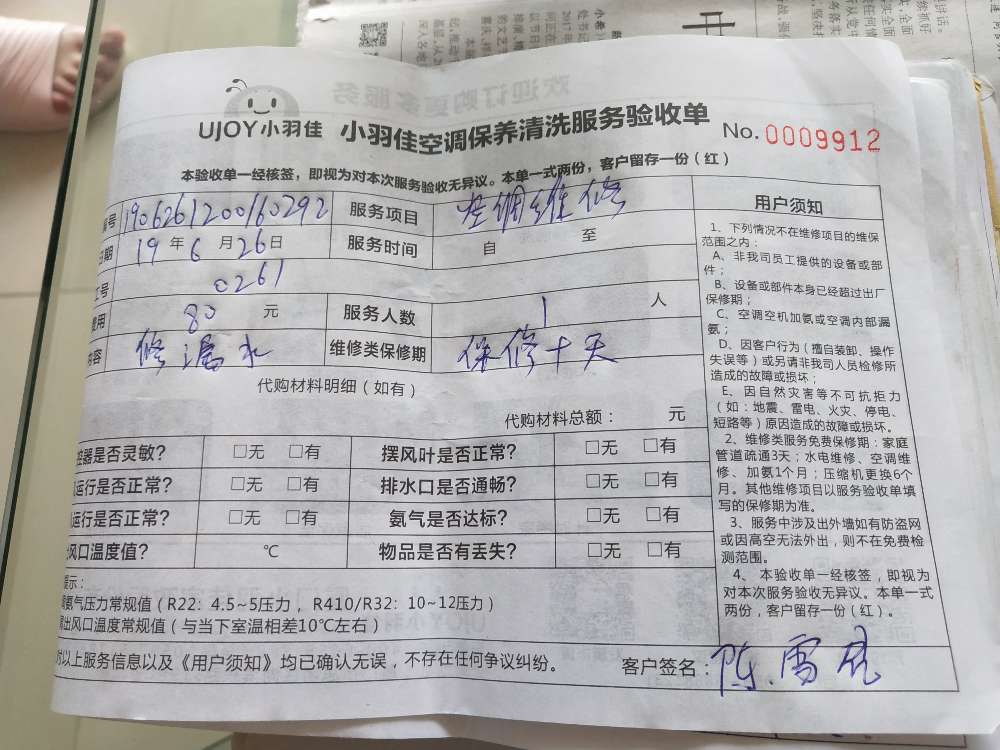 UJOY小羽佳 小羽佳空调保养清洗服务验收单 No. 0009912
本验收单一经核签，即视为对本次服务验收无异议。本单一式两份，客户留存一份（红）
编号 190626120016 0292 服务项目 空调维修
日期 19 年 6 月 26 日 服务时间 自 至
工号 0261
费用 80 元 服务人数 1 人
内容 修漏水 维修类保修期 保修十天
代购材料明细（如有）
代购材料总额： 元
控器是否灵敏？ □无 □有 摆风叶是否正常？ □无 □有
运行是否正常？ □无 □有 排水口是否通畅？ □无 □有
运行是否正常？ □无 □有 氨气是否达标？ □无 □有
风口温度值？ ℃ 物品是否有丢失？ □无 □有
提示：
氨气压力常规值（R22：4.5~5压力，R410/R32：10~12压力）
出风口温度常规值（与当下室温相差10℃左右）
对以上服务信息以及《用户须知》均已确认无误，不存在任何争议纠纷。 客户签名：陈雪
用户须知
1、下列情况不在维修项目的维保
范围之内：
A、非我司员工提供的设备或部
件；
B、设备或部件本身已经超过出厂
保修期；
C、空调空机加氨或空调内部漏
氨；
D、因客户行为（擅自装卸、操作
失误等）或另请非我司人员检修所
造成的故障或损坏；
E、因自然灾害等不可抗拒力
（如：地震、雷电、火灾、停电、
短路等）原因造成的故障或损坏。
2、维修类服务免费保修期：家庭
管道疏通3天；水电维修、空调维
修、加氨1个月；压缩机更换6个
月。其他维修项目以服务验收单填
写的保修期为准。
3、服务中涉及出外墙如有防盗网
或因高空无法外出，则不在免费检
测范围。
4、本验收单一经核签，即视为
对本次服务验收无异议。本单一式
两份，客户留存一份（红）。